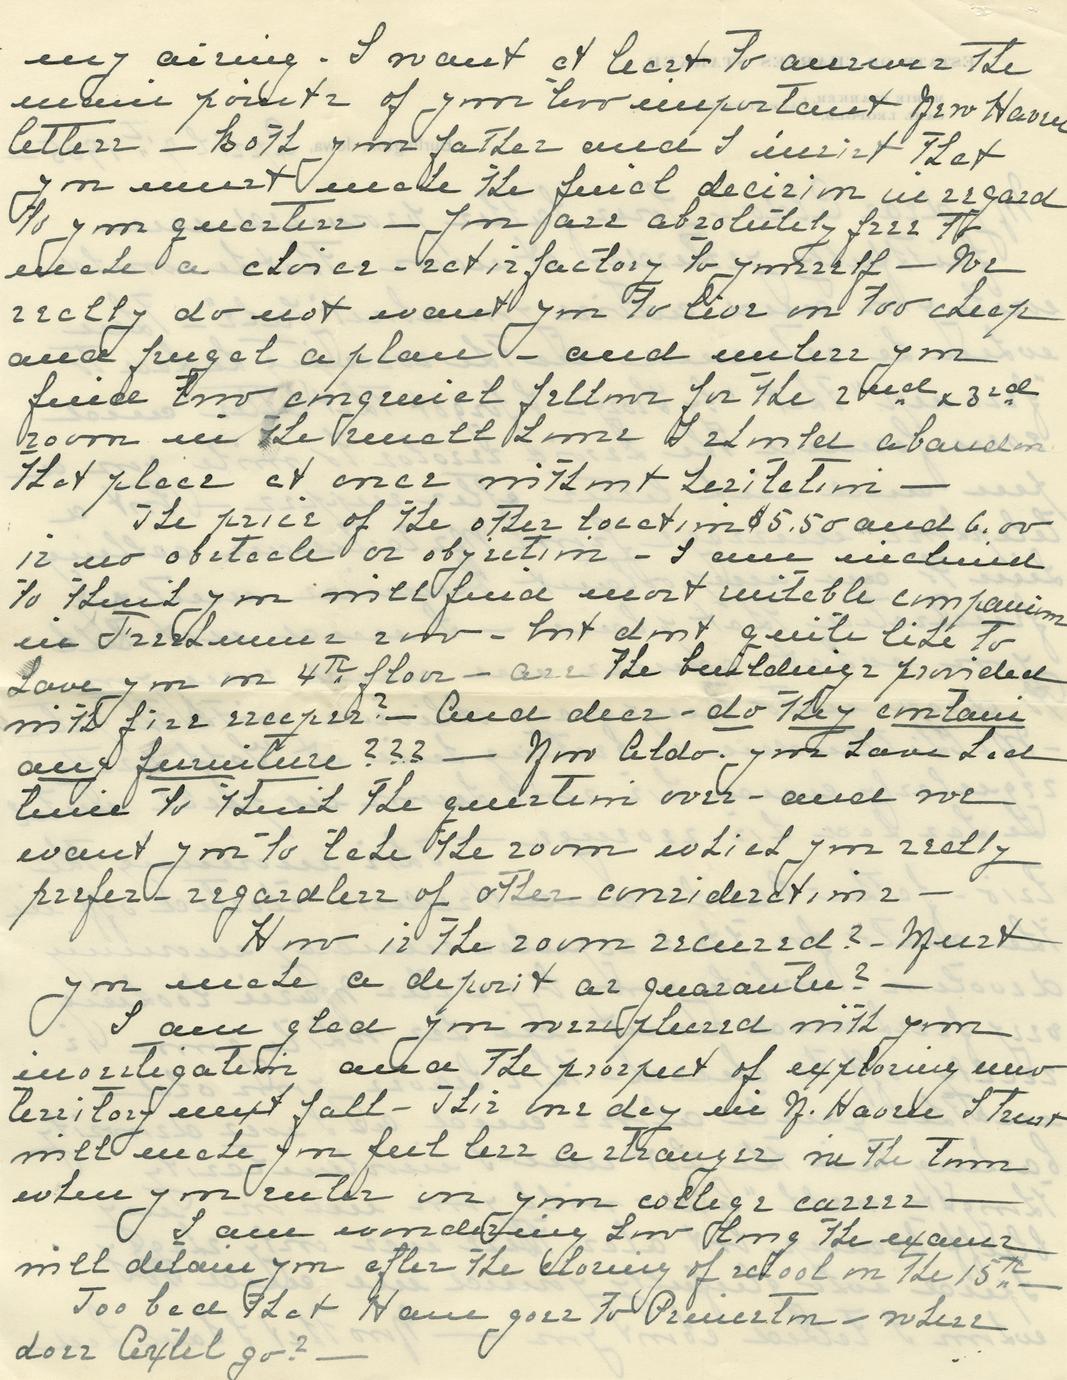 my airing. I want at least to answer the
main points of your two important New Haven
letters — Both your father and I insist that
you must make the final decision in regard
to your quarters — You are absolutely free to
make a choice - satisfactory to yourself — We
really do not want you to live in too cheap
and frugal a place — and unless you
find two congenial fellows for the 2nd & 3rd
room in the small house I should abandon
that place at once without hesitation —
The price of the other location $5.50 and 6.00
is no obstacle or objection - I am inclined
to think you will find most suitable companions
in Freshmen row - but dont quite like to
have you on 4th floor — are the buildings provided
with fire escapes? — And dear - do they contain
any furniture ??? — Now Aldo. you have had
time to think the question over - and we
want you to take the room which you really
prefer - regardless of other considerations —
How is the room secured? - Must
you make a deposit as guarantee? —
I am glad you were pleased with your
investigation and the prospect of exploring new
territory next fall - This one day in N. Haven I trust
will make you feel less a stranger in the town
when you enter on your college career —
I am wondering how long the exams
will detain you after the closing of school on the 15th —
Too bad that Ham goes to Princeton - where
does Axtel go? —